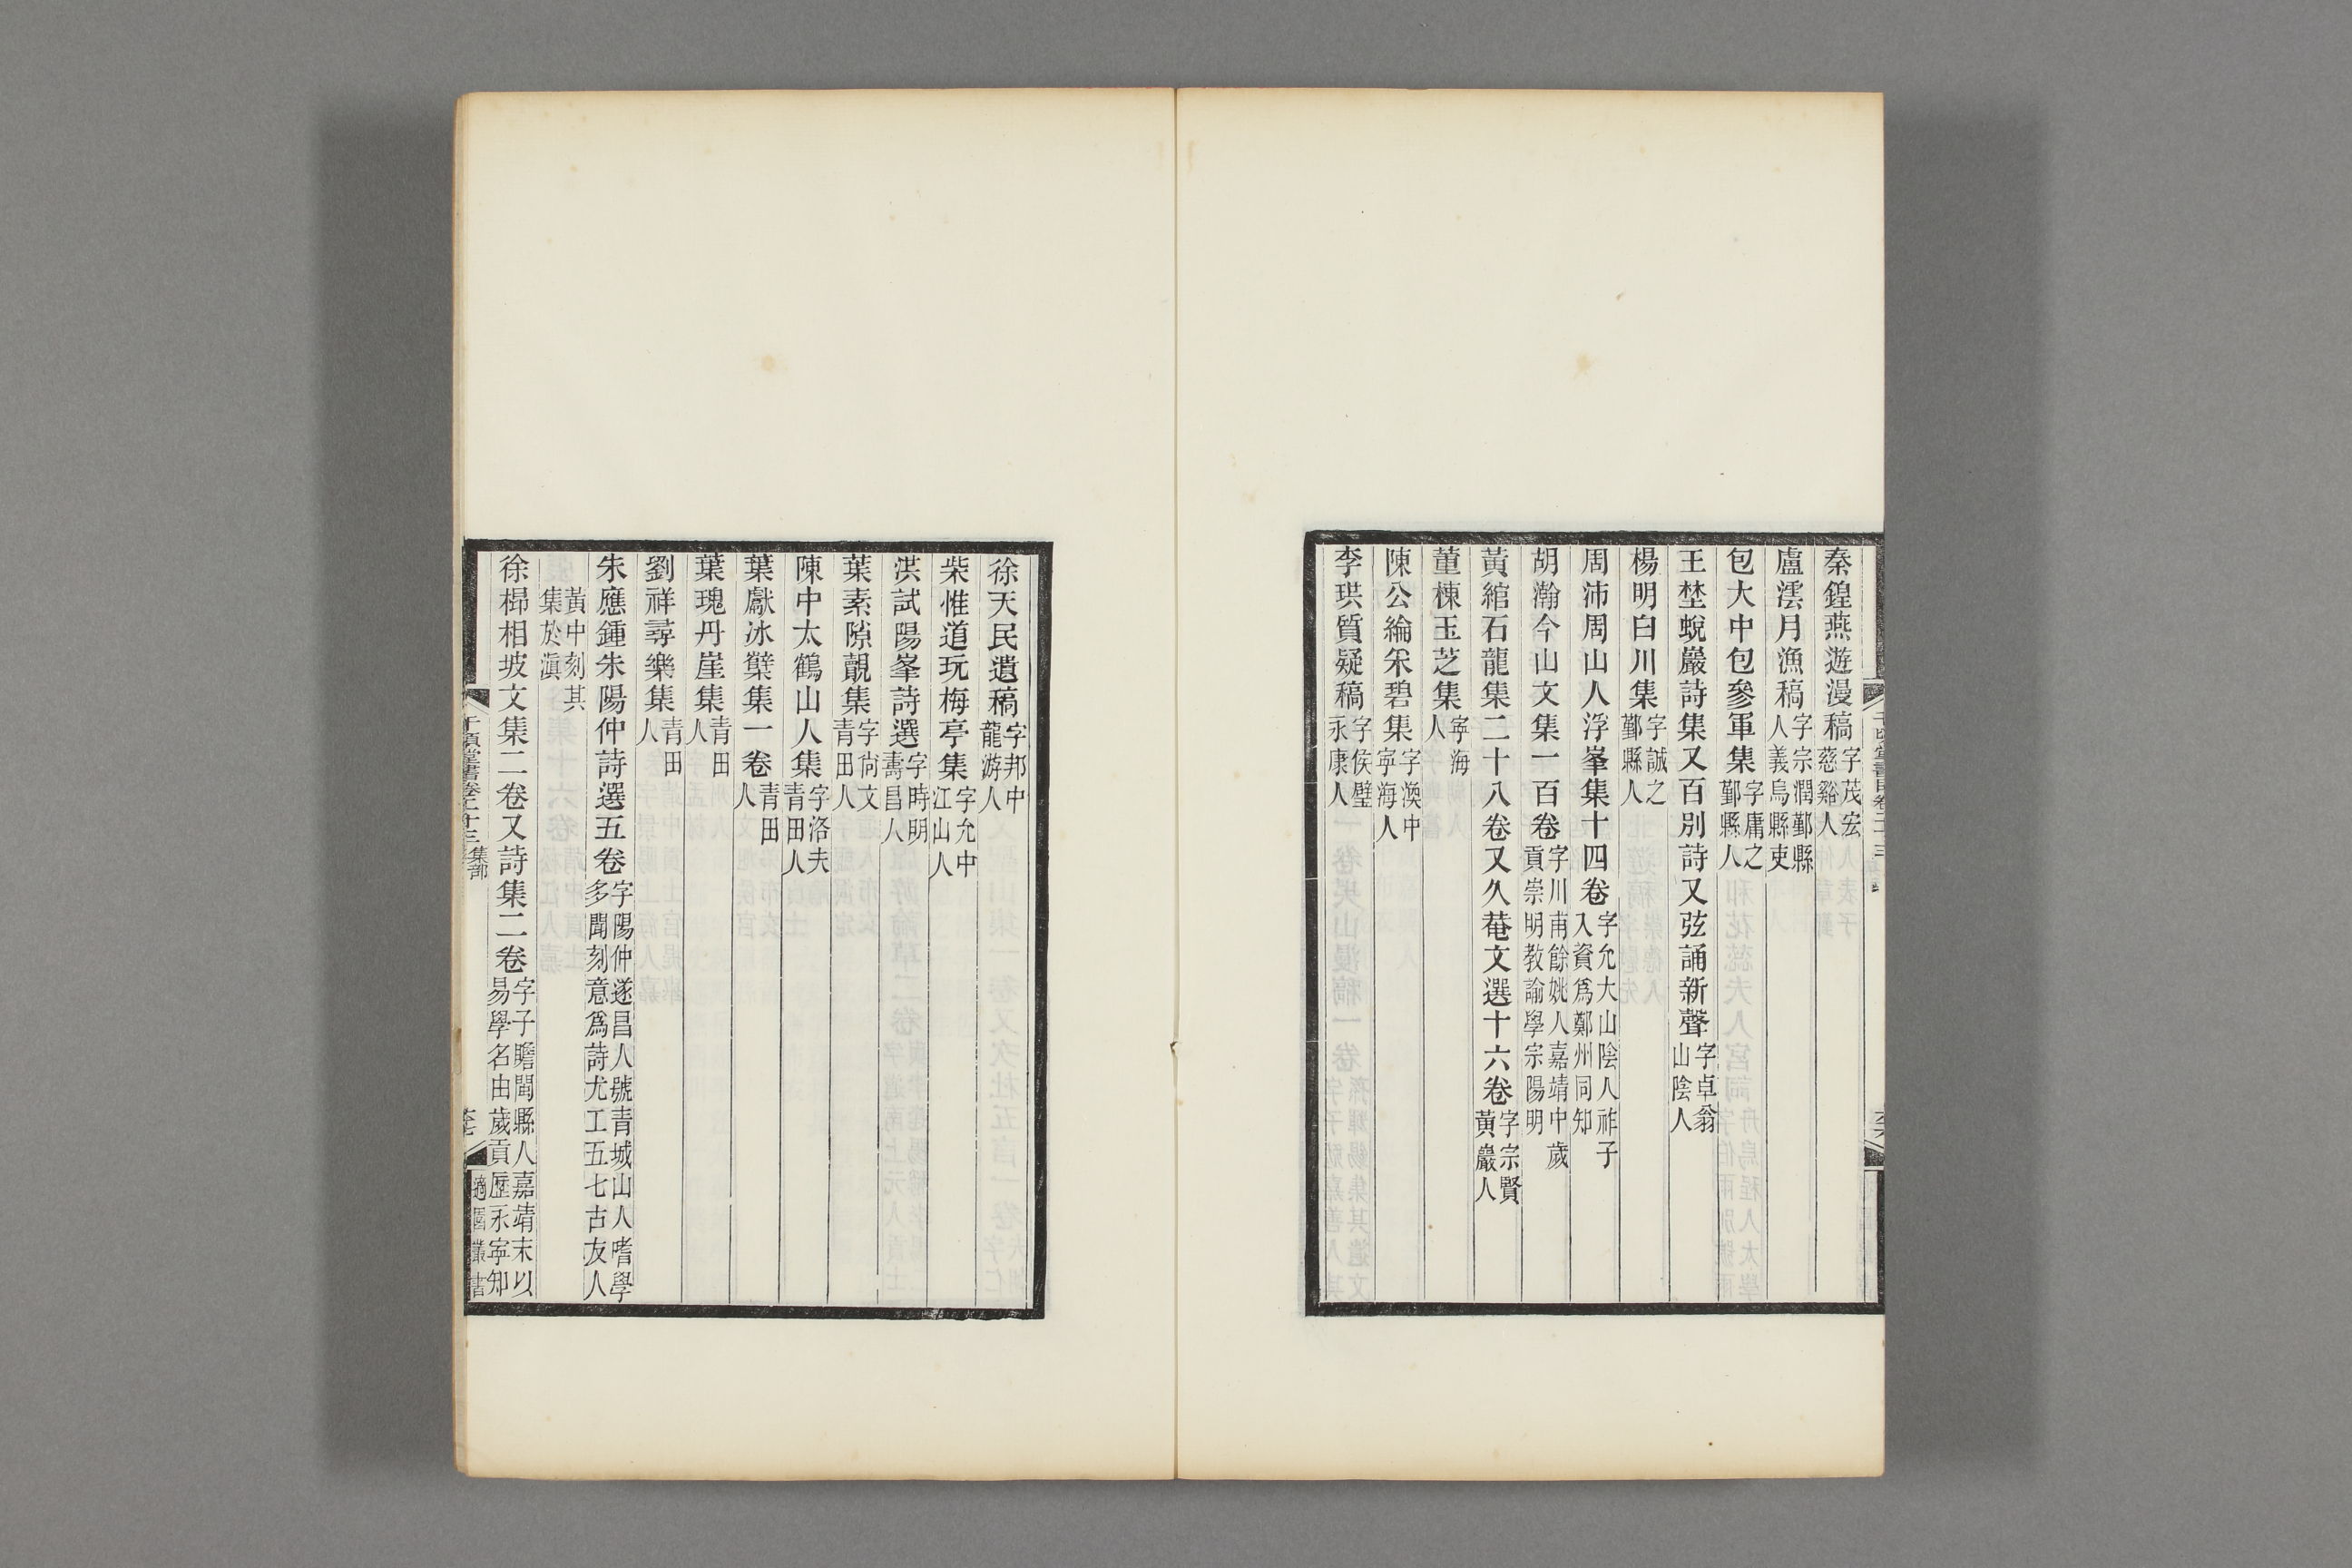 秦鍠燕遊漫稿字茂宏慈谿人
盧澐月漁稿字宗潤鄞縣人義烏縣吏
包大中包參軍集字庸之鄞縣人
王埜蛻巖詩集又百別詩又弦誦新聲字卓翁山陰人
楊明白川集字誠之鄞縣人
周沛周山人浮峯集十四卷字允大山陰人祚子入資爲鄭州同知
胡瀚今山文集一百卷字川甫餘姚人嘉靖中歲貢崇明教諭學宗陽明
黃綰石龍集二十八卷又久菴文選十六卷字宗賢黃巖人
董棟玉芝集寧海人
陳公綸罙碧集字渙中寧海人
李珙質疑稿字侯璧永康人
徐天民遺稿字邦中龍游人
柴惟道玩梅亭集字允中江山人
洪試陽峯詩選字時明壽昌人
葉素隙覶集字尙文青田人
陳中太鶴山人集字洛夫青田人
葉獻冰櫱集一卷青田人
葉瑰丹崖集青田人
劉祥尋樂集青田人
朱應鍾朱陽仲詩選五卷字陽仲遂昌人號青城山人嗜學多聞刻意爲詩尤工五七古友人
黃中刻其集於滇
徐㭿相坡文集二卷又詩集二卷字子瞻閩縣人嘉靖末以易學名由歲貢歷永寧知
千頃堂書卷二十三 集部
六七
適園叢書